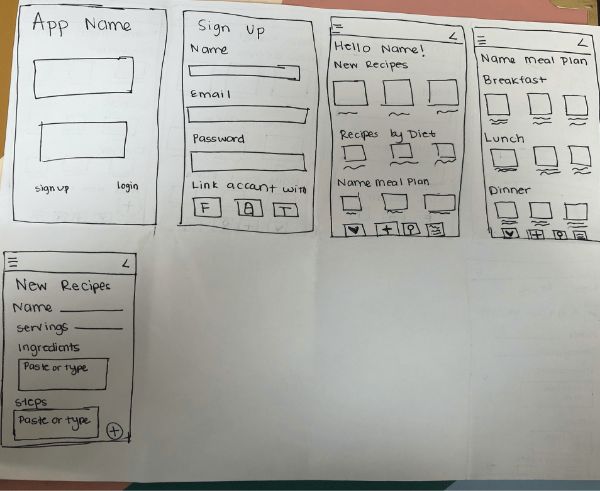 App Name
sign up
login
Sign Up
Name
Email
Password
Link accant with
F
T
Hello Name!
New Recipes
Recipes by Diet
Name meal Plan
Name meal Plan
Breakfast
Lunch
Dinner
New Recipes
Name
servings
Ingredients
Paste or type
steps
Paste or type